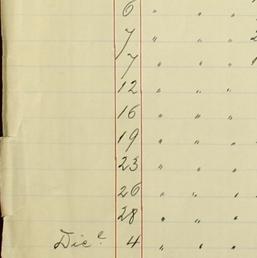 6 " " "
7 " " "
7 " " "
12 " " "
16 " " "
19 " " "
23 " " "
26 " " "
28 " " "
Dice. 4 " " "